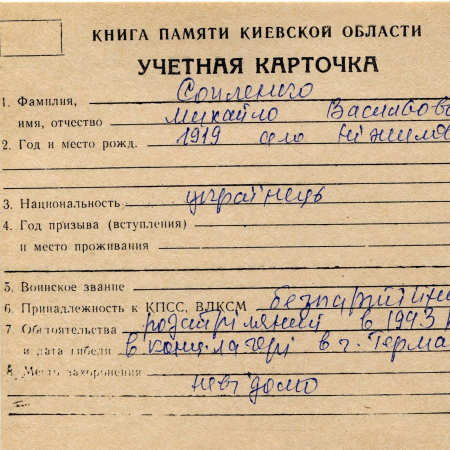 КНИГА ПАМЯТИ КИЕВСКОЙ ОБЛАСТИ
УЧЕТНАЯ КАРТОЧКА
1. Фамилия,
имя, отчество Михайло
2. Год и место рожд. 1919 село
3. Национальность українець
4. Год призыва (вступления)
и место проживания
5. Воинское звание
6. Принадлежность к КПСС, ВЛКСМ
7. Обстоятельства розстріляний в 1943
и дата гибели в концлагері в г.
8. Место захоронения
невідомо